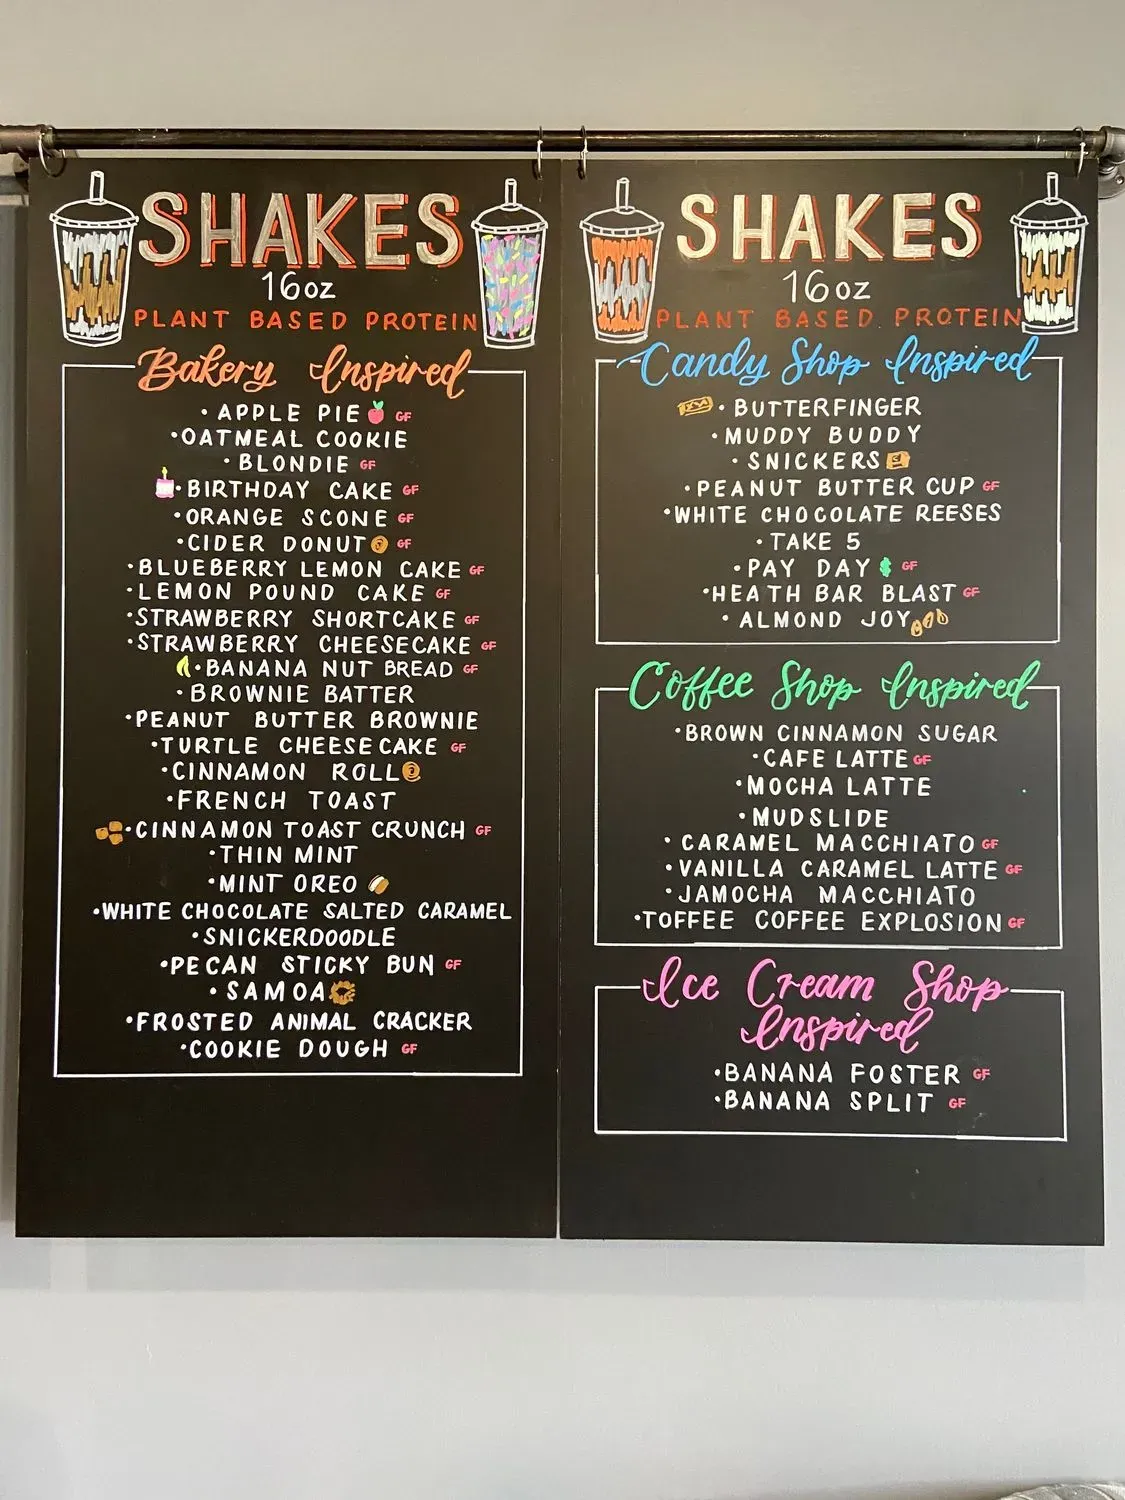 SHAKES
16oz
PLANT BASED PROTEIN
Bakery Inspired
• APPLE PIE GF
• OATMEAL COOKIE
• BLONDIE GF
• BIRTHDAY CAKE GF
• ORANGE SCONE GF
• CIDER DONUT GF
• BLUEBERRY LEMON CAKE GF
• LEMON POUND CAKE GF
• STRAWBERRY SHORTCAKE GF
• STRAWBERRY CHEESECAKE GF
• BANANA NUT BREAD GF
• BROWNIE BATTER
• PEANUT BUTTER BROWNIE
• TURTLE CHEESECAKE GF
• CINNAMON ROLL
• FRENCH TOAST
• CINNAMON TOAST CRUNCH GF
• THIN MINT
• MINT OREO
• WHITE CHOCOLATE SALTED CARAMEL
• SNICKERDOODLE
• PECAN STICKY BUN GF
• SAMOA
• FROSTED ANIMAL CRACKER
• COOKIE DOUGH GF
SHAKES
16oz
PLANT BASED PROTEIN
Candy Shop Inspired
• BUTTERFINGER
• MUDDY BUDDY
• SNICKERS
• PEANUT BUTTER CUP GF
• WHITE CHOCOLATE REESES
• TAKE 5
• PAY DAY $ GF
• HEATH BAR BLAST GF
• ALMOND JOY
Coffee Shop Inspired
• BROWN CINNAMON SUGAR
• CAFE LATTE GF
• MOCHA LATTE
• MUDSLIDE
• CARAMEL MACCHIATO GF
• VANILLA CARAMEL LATTE GF
• JAMOCHA MACCHIATO
• TOFFEE COFFEE EXPLOSION GF
Ice Cream Shop
Inspired
• BANANA FOSTER GF
• BANANA SPLIT GF